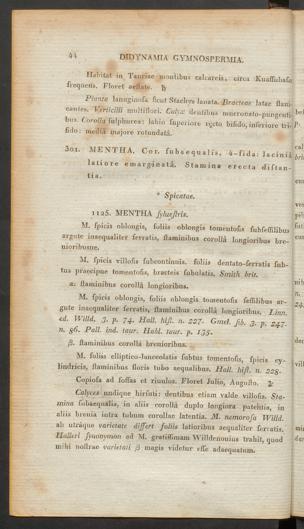 44 DIDYNAMIA GYMNOSPERMIA.
Habitat in Tauriae montibus calcareis, circa Kuaſſubaſar
frequens. Floret aeſtate. ♄
Planta lanuginoſa ſicut Stachys lanata. Bracteae latae flani-
cantes. Verticilli multiflori. Calyx dentibus mucronato-pungenti-
bus. Corolla ſulphurea: labio ſuperiore recto bifido, inferiore tri-
fido: media majore rotundata.
301. MENTHA. Cor. ſubaequalis, 4-fida: lacinia
latiore emarginatâ. Stamina erecta diſtan-
tia.
* Spicatae.
1125. MENTHA ſylveſtris.
M. ſpicis oblongis, foliis oblongis tomentoſis ſubſeſſilibus
argute inaequaliter ſerratis, ſtaminibus corollâ longioribus bre-
vioribusue.
M. ſpicis villoſis ſubcontinuis, foliis dentato-ſerratis ſub-
tus praecipue tomentoſis, bracteis ſubulatis. Smith brit.
α. ſtaminibus corollâ longioribus.
M. ſpicis oblongis, foliis oblongis tomentoſis ſeſſilibus ar-
gute inaequaliter ſerratis, ſtaminibus corollâ longioribus. Linn.
ed. Willd. 3. p. 74. Hall. hiſt. n. 227. Gmel. ſib. 3. p. 247.
n. 96. Pall. ind. taur. Habl. taur. p. 135.
β. ſtaminibus corollâ brevioribus.
M. foliis elliptico-lanceolatis ſubtus tomentoſis, ſpicis cy-
lindricis, ſtaminibus floris tubo aequalibus. Hall. hiſt. n. 228.
Copioſa ad foſſas et rivulos. Floret Julio, Auguſto. ♃
Calyces undique hirſuti: dentibus etiam valde villoſis. Sta-
mina ſubaequalia, in aliis corollâ duplo longiora patentia, in
aliis brevia intra tubum corollae latentia. M. nemoroſa Willd.
ab utrâque varietate differt foliis latioribus aequaliter ſerratis.
Halleri ſynonymon ad M. gratiſſimam Willdenouius trahit, quod
mihi noſtrae varietati β magis videtur eſſe adaequatum.